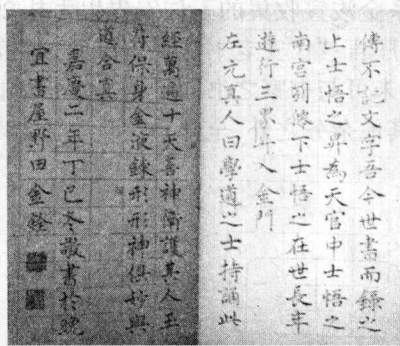 傳不記文字吾今世書而錄之
上士悟之昇為天官中士悟之
南宮列仙下士悟之在世長年
遊行三界升入金門
左元真人曰學道之士持誦此
經萬遍十天善神衛護真人玉
符保身金液鍊形形神俱妙與
道合真
嘉慶二年丁巳冬敬書於晚
宜書屋野田金銓